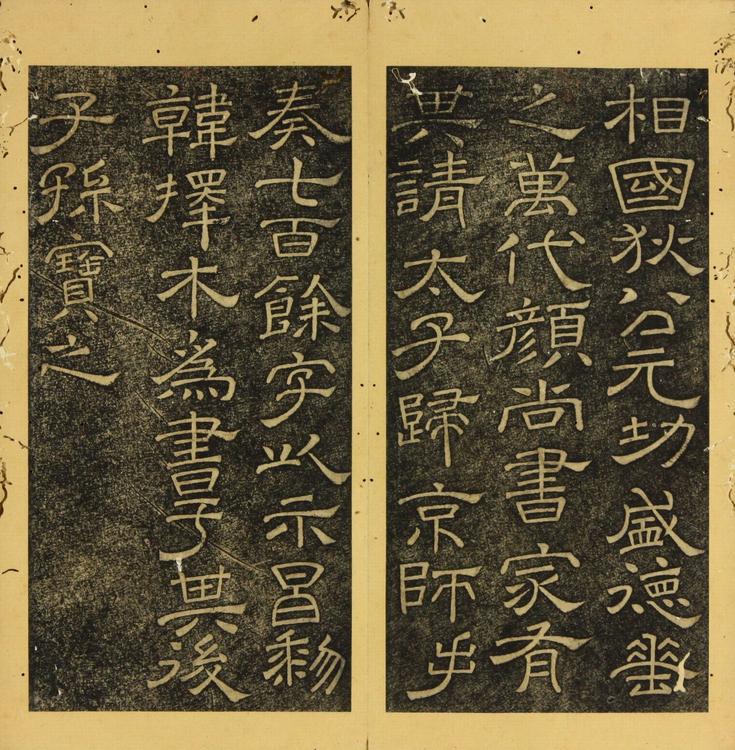 相國狄公元功盛德垂
之萬代顏尚書家有
其請太子歸京師手
奏七百餘字以示昌黎
韓擇木為書乎其後
子孫寶之